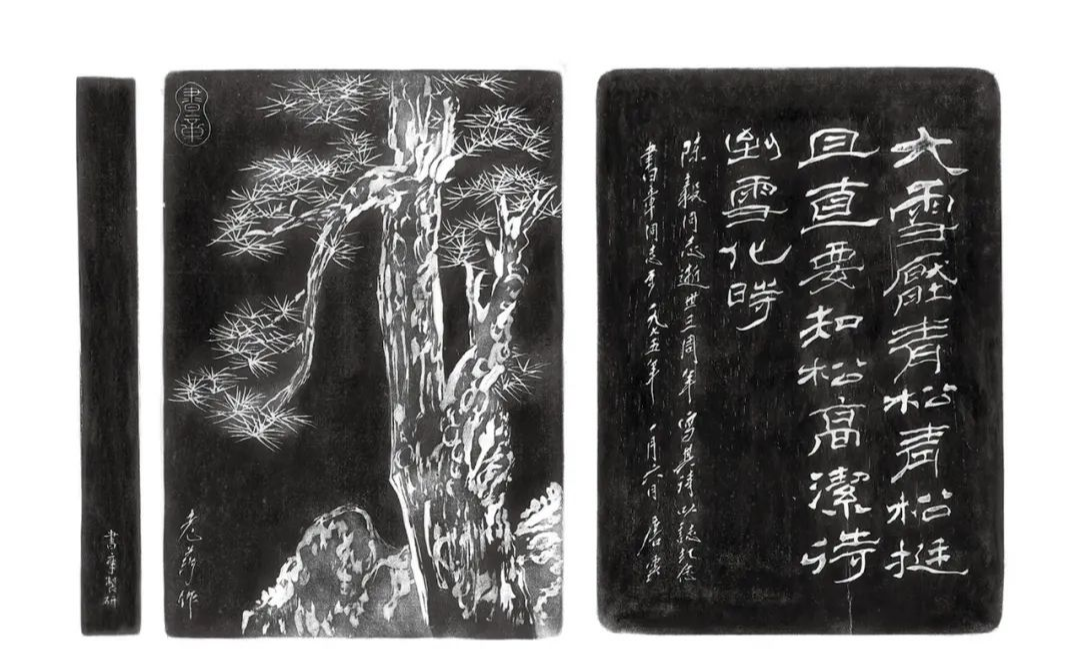 大雪壓青松青松挺
且直要知松高潔待
到雪化時
陳毅同志逝世三周年寫其詩以誌紀念
書章同志一九七五年一月六日唐雲
書章
老葯作
書章製研